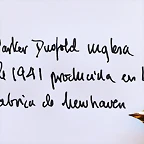 Parker Duofold inglesa
de 1941 producida en l
fabrica de Newhaven